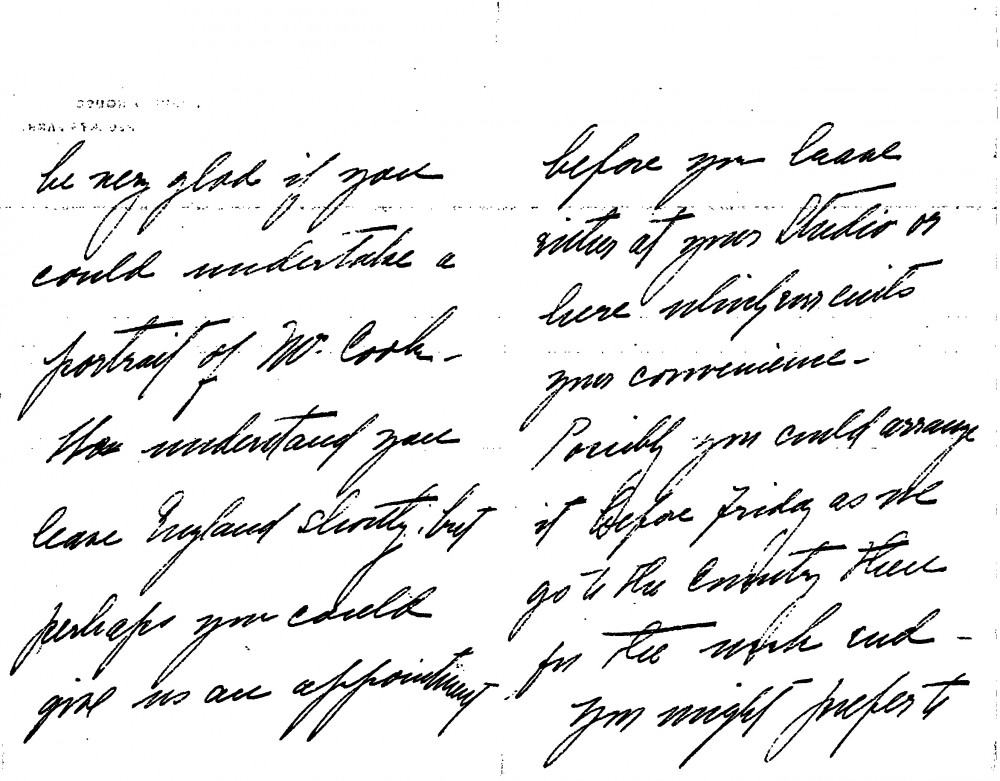 be very glad if you
could undertake a
portrait of Mr. Cook -
We understand you
leave England shortly, but
perhaps you could
give us an appointment
before you leave
either at your Studio or
here whichever suits
your convenience -
Possibly you could arrange
it before Friday as we
go to the Country then
for the week end -
You might prefer to